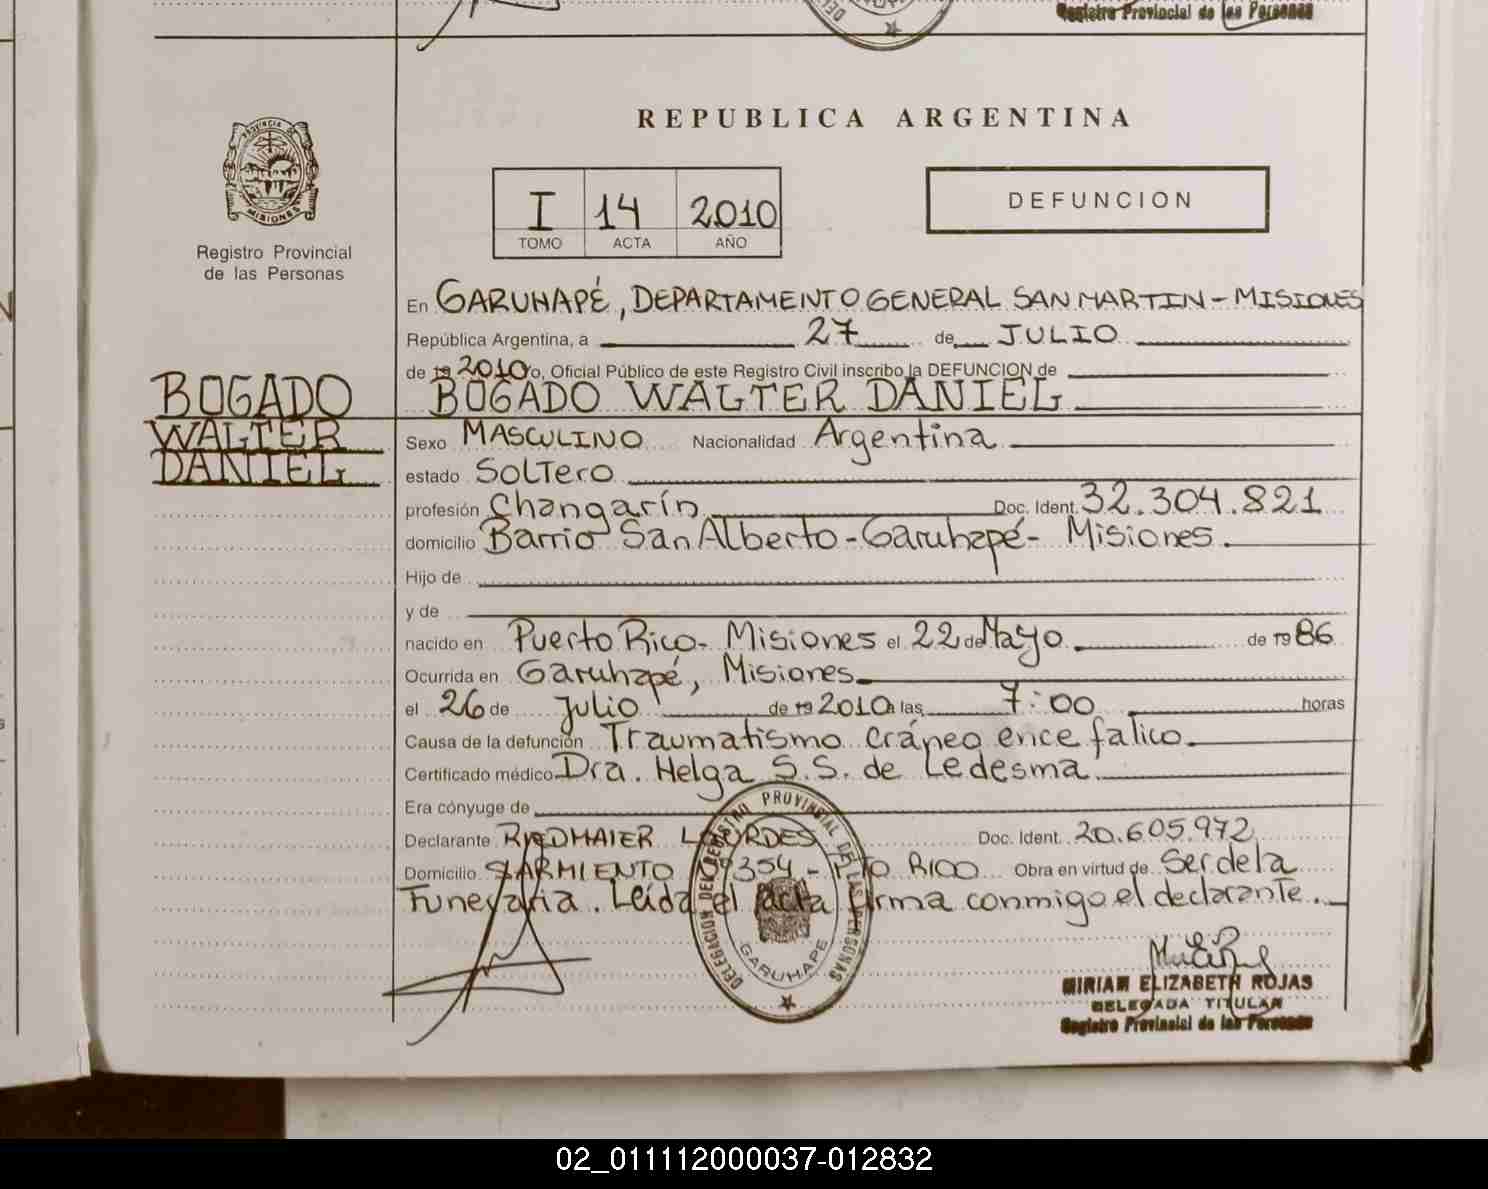 Registro Provincial de las Personas
REPUBLICA ARGENTINA
PROVINCIA DE
MISIONES
Registro Provincial
de las Personas
I 14 2010
TOMO ACTA AÑO
DEFUNCION
En GARUHAPÉ, DEPARTAMENTO GENERAL SAN MARTIN - MISIONES
República Argentina, a 27 de JULIO
de 19 2010 yo, Oficial Público de este Registro Civil inscribo la DEFUNCION de
BOGADO WALTER DANIEL
BOGADO
WALTER
DANIEL
Sexo MASCULINO Nacionalidad Argentina
estado SOLTero
profesión Changarín Doc. Ident. 32.304.821
domicilio Barrio San Alberto - Garuhapé - Misiones.
Hijo de
y de
nacido en Puerto Rico - Misiones el 22 de Mayo de 19 86
Ocurrida en Garuhapé, Misiones
el 26 de Julio de 19 2010 a las 7:00 horas
Causa de la defunción Traumatismo cráneo encefalico.
Certificado médico Dra. Helga S.S. de Ledesma
Era cónyuge de
Declarante RIEDMAIER LOURDES Doc. Ident. 20.605.972
Domicilio SARMIENTO Nº 354 - PTO RICO Obra en virtud de Ser de la
Funeraria. Leída el acta firma conmigo el declarante.
DELEGACION DEL REGISTRO PROVINCIAL DE LAS PERSONAS
GARUHAPE
MIRIAM ELIZABETH ROJAS
DELEGADA TITULAR
Registro Provincial de las Personas
02_011112000037-012832